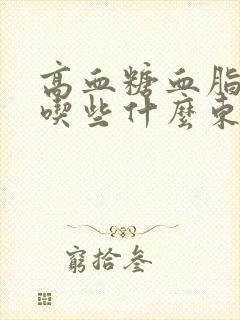 高血糖血脂
喫些什麼東
窮拾叄